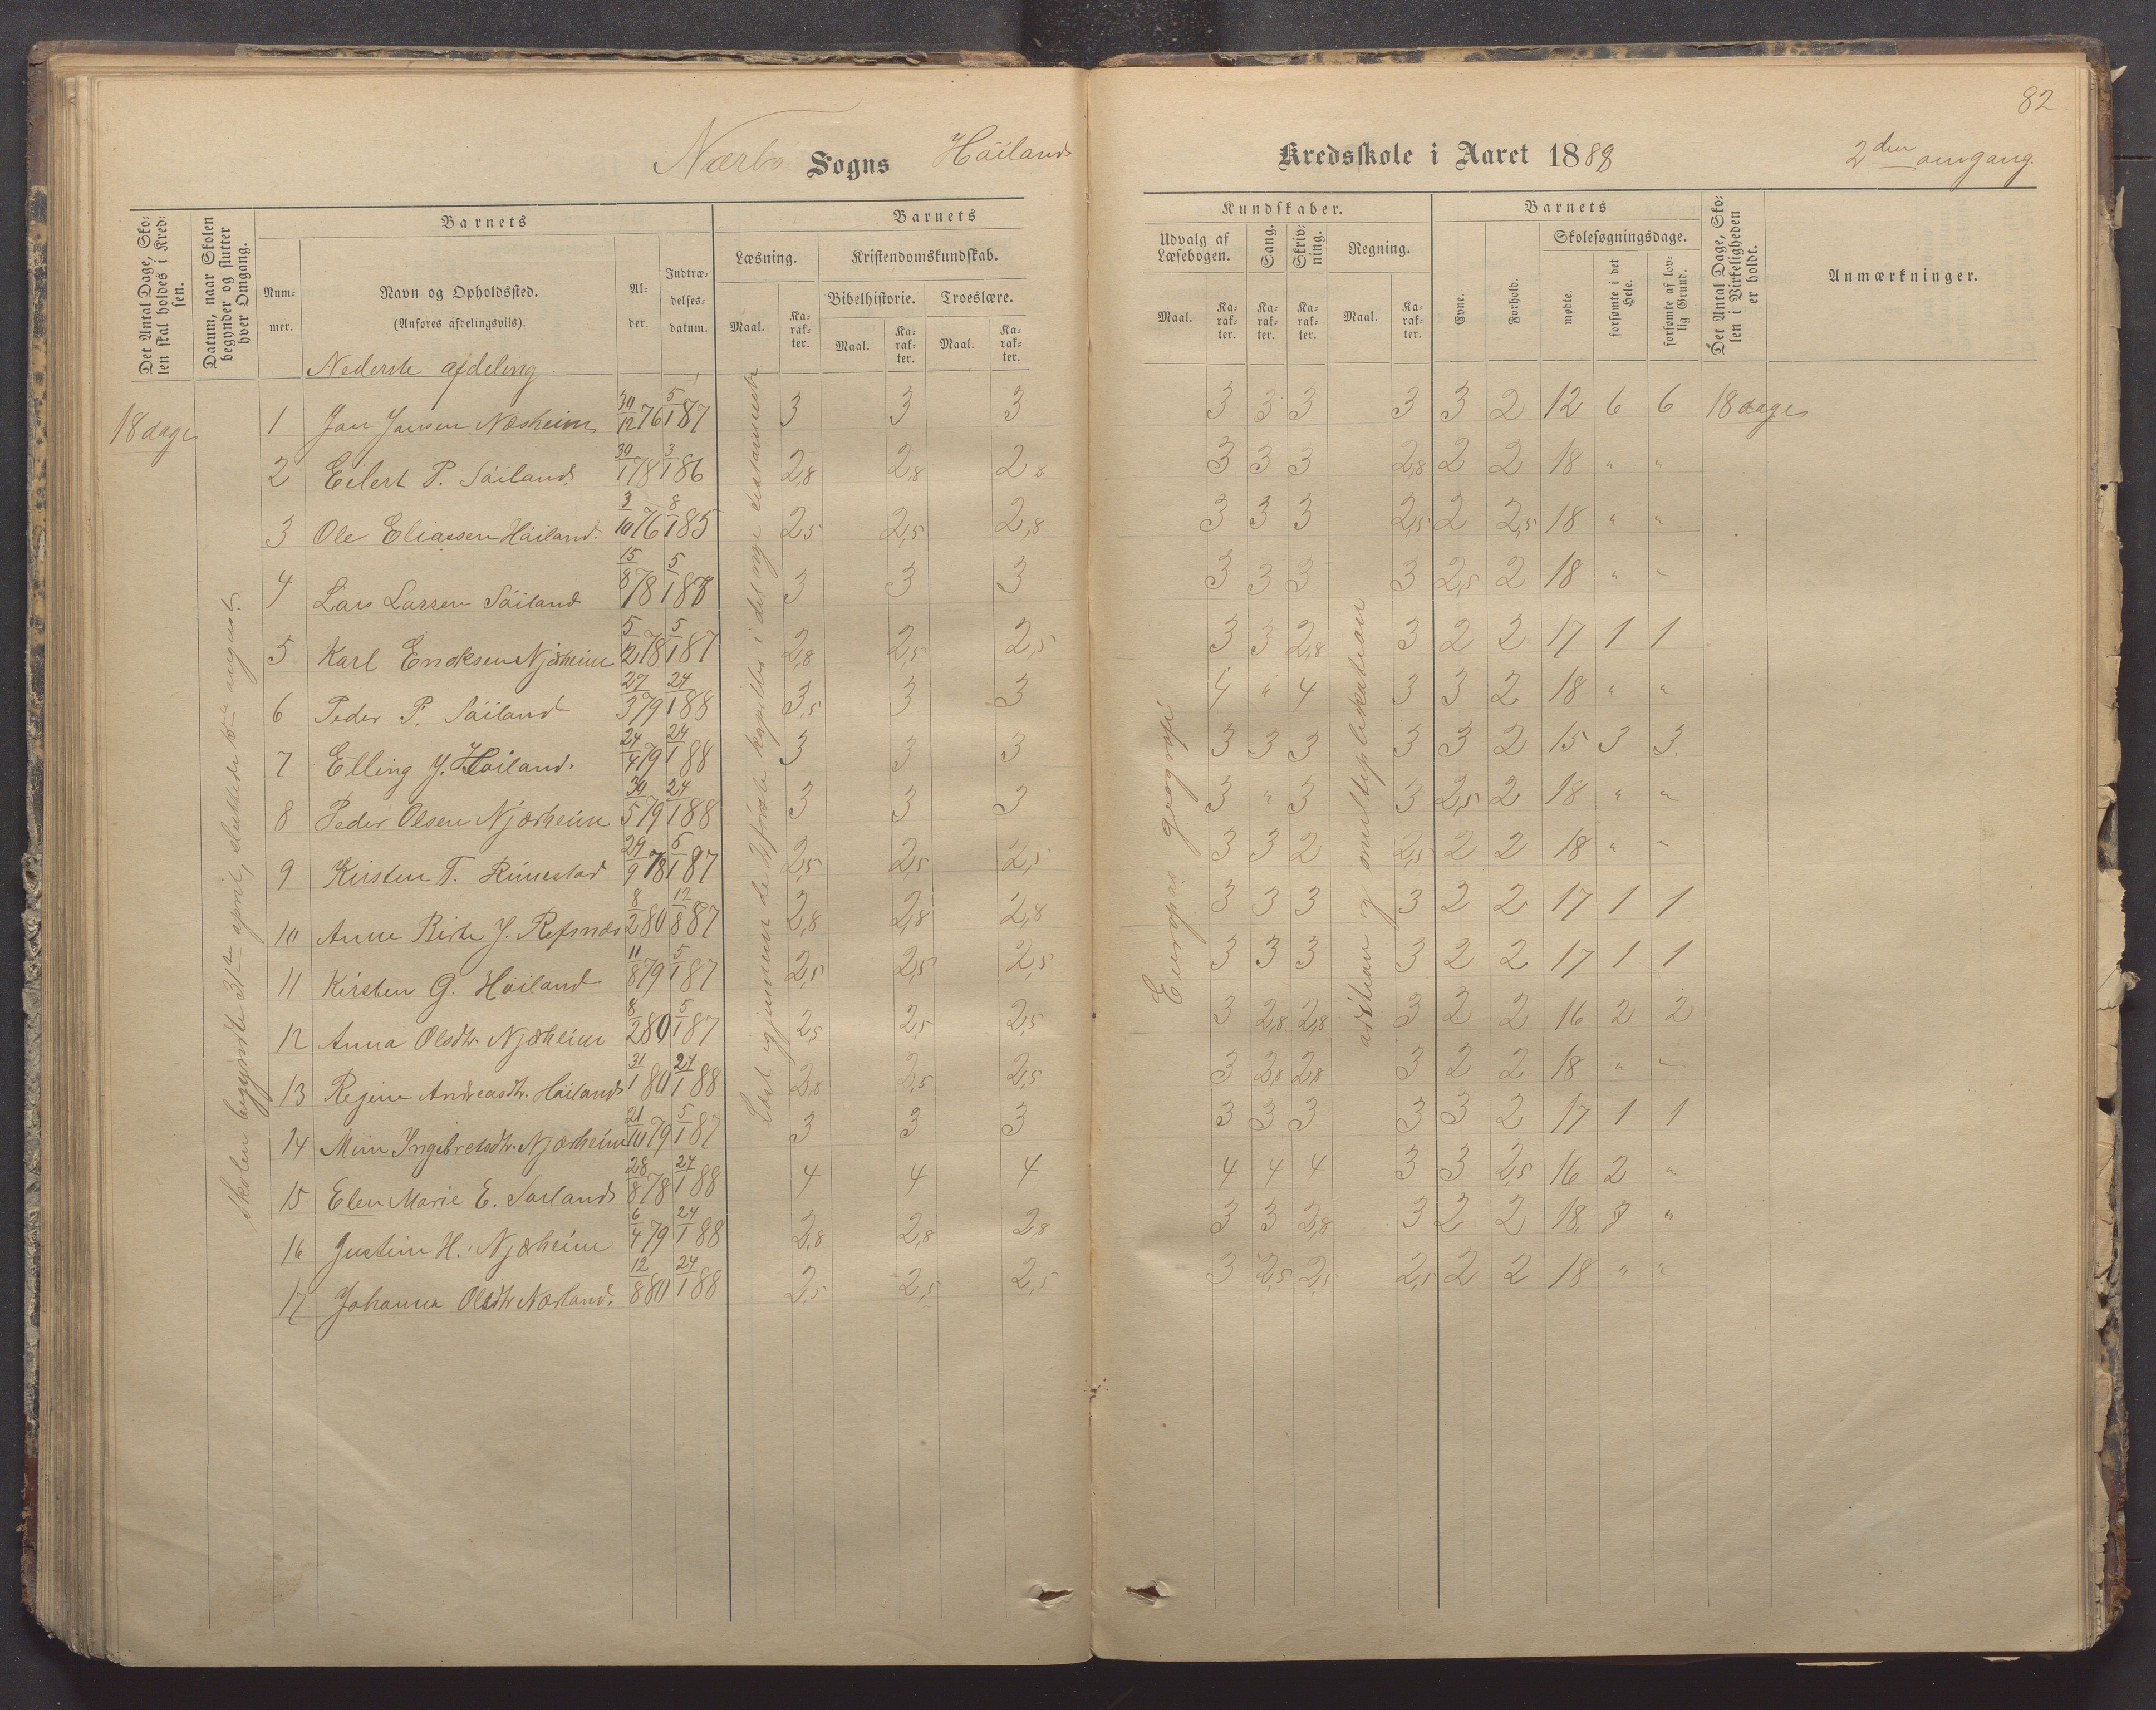 82
Nærbø Sogns Höilands Kredsskole i Aaret 1888 2den omgang.
Det Antal Dage, Skolen skal holdes i Kredsen.
Datum, naar Skolen begynder og slutter hver Omgang.
Barnets
Num-mer.
Navn og Opholdssted.
(Anføres afdelingsviis).
Al-der.
Indtræ-delses-datum.
Barnets Kundskaber.
Læsning.
Maal.
Ka-rak-ter.
Kristendomskundskab.
Bibelhistorie.
Maal.
Ka-rak-ter.
Troeslære.
Maal.
Ka-rak-ter.
Udvalg af Læsebogen.
Maal.
Ka-rak-ter.
Sang.
Ka-rak-ter.
Skriv-ning.
Ka-rak-ter.
Regning.
Maal.
Ka-rak-ter.
Barnets
Evne.
Forhold.
Skolesøgningsdage.
mødte.
forsømte i det Hele.
forsømte af lov-lig Grund.
Det Antal Dage, Sko-len i Virkeligheden er holdt.
Anmærkninger.
Nederste afdeling
18 dage 1 Jan Jansen Næsheim 30/12 76 5/1 87 3 3 3 3 3 3 3 3 2 12 6 6 18 dage
2 Eilert P. Söiland 30/1 78 3/1 86 2,8 2,8 2,8 3 3 3 2,8 2 2 18 " "
3 Ole Eliassen Höiland. 3/10 76 8/1 85 2,5 2,5 2,8 3 3 3 2,5 2 2,5 18 " "
4 Lars Larsen Söiland 15/8 78 5/1 87 3 3 3 3 3 3 3 2,5 2 18 " "
5 Karl Enoksen Njærheim 5/12 78 5/1 87 2,8 2,5 2,5 3 3 2,8 3 2 2 17 1 1
6 Peder P. Söiland 27/3 79 24/1 88 3,5 3 3 4 " 4 3 3 2 18 " "
7 Elling J. Höiland. 24/4 79 24/1 88 3 3 3 3 3 3 3 3 2 15 3 3.
8 Peder Olsen Njærheim 30/5 79 24/1 88 3 3 3 3 " 3 3 2,5 2 18 " "
9 Kirsten T. Rimestad 29/9 78 5/1 87 2,5 2,5 2,5 3 3 2 2,5 2 2 18 " "
10 Anne Birte J. Refsnæs 8/2 80 12/8 87 2,8 2,8 2,8 3 3 3 3 2 2 17 1 1
11 Kirsten G. Höiland 11/8 79 5/1 87 2,5 2,5 2,5 3 3 3 3 2 2 17 1 1
12 Anna Olsdtr. Njærheim 8/2 80 5/1 87 2,5 2,5 2,5 3 2,8 2,8 3 2 2 16 2 2
13 Regine Andreasdtr. Höiland 31/1 80 24/1 88 2,8 2,5 2,5 3 2,8 2,8 3 2 2 18 " "
14 Mina Ingebretsdtr. Njærheim 21/10 79 5/1 87 3 3 3 3 3 3 3 3 2 17 1 1
15 Elen Marie E. Sorland 28/8 78 24/1 88 4 4 4 4 4 4 3 3 2,5 16 2 "
16 Justine H. Njærheim 6/4 79 24/1 88 2,8 2,8 2,8 3 3 2,8 3 2 2 18 "
17 Johanna Olsdtr Nærland. 12/8 80 24/1 88 2,5 2,5 2,5 3 2,5 2,5 2,5 2 2 18 " "
Skolen begyndte 31te april, sluttede august.
Læst igjennem de kapitler i det nye testamente
Europas geografi
addition og multiplikation